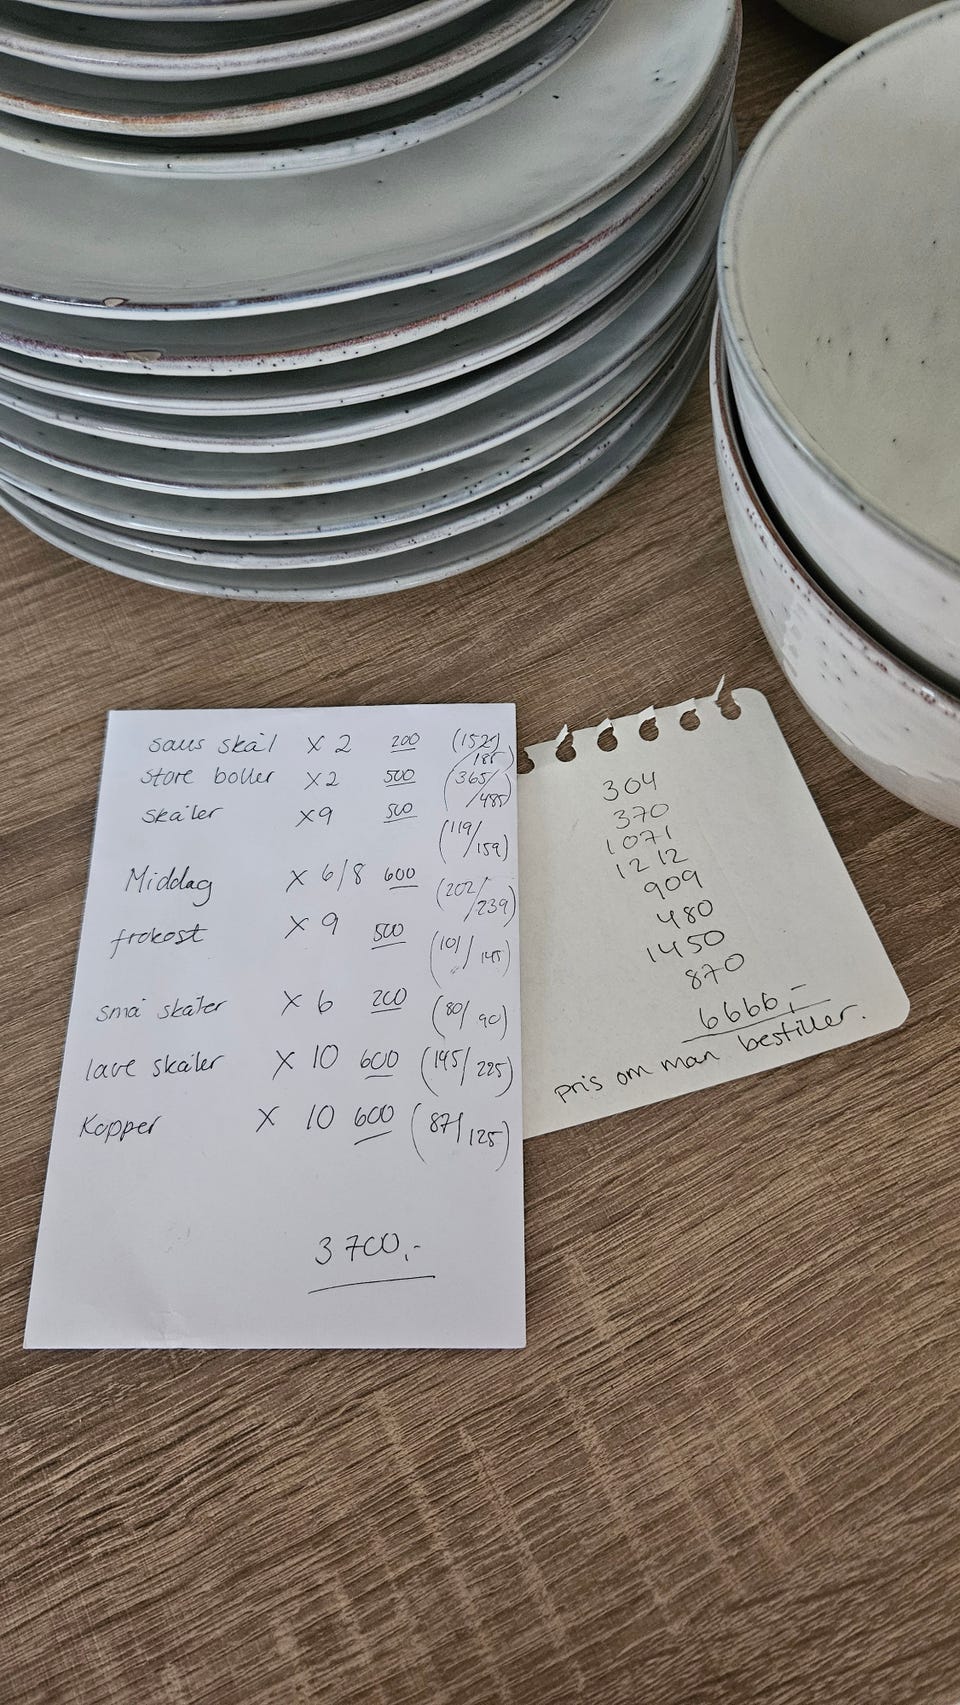 saus skål x 2 200 (152/
185)
store boller x2 500 (365/
/485)
skåler x9 500
(119/
/159)
Middag x 6/8 600 (202/
/239)
frokost x 9 500 (101/ 145)
små skåler x 6 200 (80/ 90)
lave skåler x 10 600 (145/ 225)
Kopper x 10 600 (87/ 125)
3 700,-
304
370
1071
1212
909
480
1450
870
6666,-
pris om man bestiller.